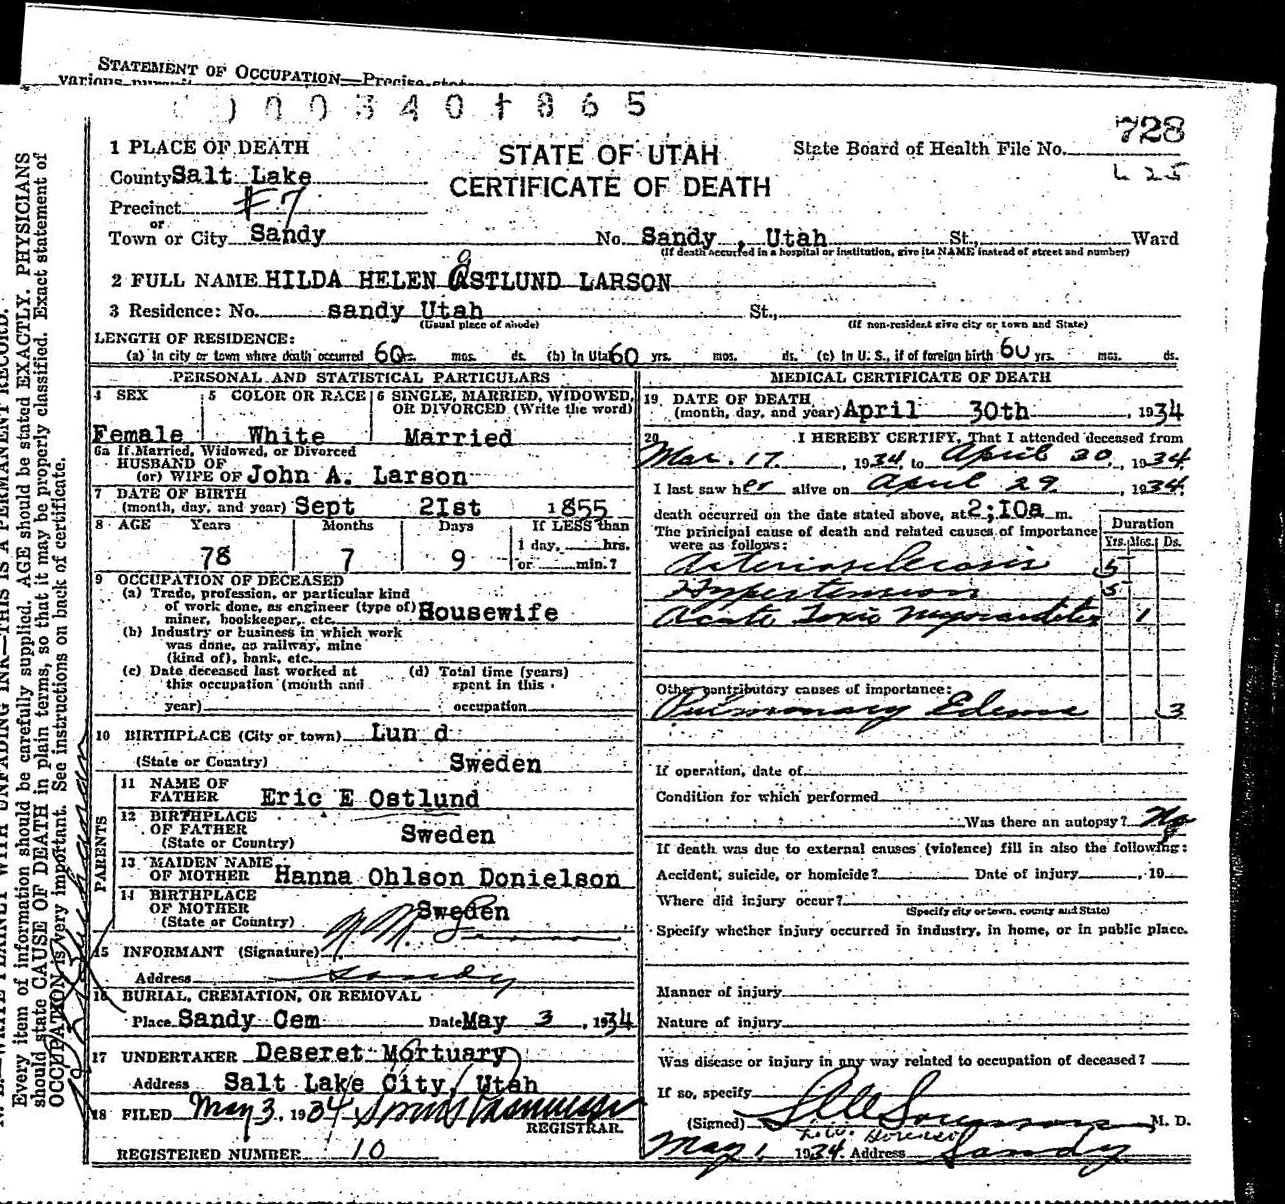 STATEMENT OF OCCUPATION—Precise
0 0 3 4 0 1 8 6 5
728
1 PLACE OF DEATH
STATE OF UTAH
State Board of Health File No.
CERTIFICATE OF DEATH
County Salt Lake
Precinct #7
or
Town or City Sandy No. Sandy , Utah St., Ward
(If death occurred in a hospital or institution, give its NAME instead of street and number)
2 FULL NAME HILDA HELEN OSTLUND LARSON
3 Residence: No. sandy Utah St.,
(Usual place of abode) (If non-resident give city or town and State)
LENGTH OF RESIDENCE:
(a) In city or town where death occurred 60 rs. mos. ds. (b) In Utah 60 yrs. mos. ds. (c) In U. S., if of foreign birth 60 yrs. mos. ds.
PERSONAL AND STATISTICAL PARTICULARS
4 SEX 5 COLOR OR RACE 6 SINGLE, MARRIED, WIDOWED, OR DIVORCED (Write the word)
Female White Married
6a If Married, Widowed, or Divorced
HUSBAND OF
(or) WIFE OF John A. Larson
7 DATE OF BIRTH
(month, day, and year) Sept 2Ist 1855
8 AGE Years Months Days If LESS than
78 7 9 1 day, hrs.
or min.?
9 OCCUPATION OF DECEASED
(a) Trade, profession, or particular kind
of work done, as engineer (type of)
miner, bookkeeper, etc. Housewife
(b) Industry or business in which work
was done, as railway, mine
(kind of), bank, etc.
(c) Date deceased last worked at (d) Total time (years)
this occupation (month and spent in this
year) occupation
10 BIRTHPLACE (City or town) Lun d
(State or Country) Sweden
PARENTS
11 NAME OF
FATHER Eric E Ostlund
12 BIRTHPLACE
OF FATHER Sweden
(State or Country)
13 MAIDEN NAME
OF MOTHER Hanna Ohlson Donielson
14 BIRTHPLACE
OF MOTHER Sweden
(State or Country)
15 INFORMANT (Signature)
Address Sandy
16 BURIAL, CREMATION, OR REMOVAL
Place Sandy Cem Date May 3 , 1934
17 UNDERTAKER Deseret Mortuary
Address Salt Lake City, Utah
18 FILED May 3, 1934
REGISTRAR.
REGISTERED NUMBER 10
MEDICAL CERTIFICATE OF DEATH
19. DATE OF DEATH
(month, day, and year) April 30th , 1934
20 I HEREBY CERTIFY, That I attended deceased from
Mar. 17. , 1934, to April 30, 1934.
I last saw her alive on April 29. , 1934.
death occurred on the date stated above, at 2;I0a m.
The principal cause of death and related causes of importance
were as follows:
Duration
Yrs. Mos. Ds.
Arteriosclerosis 5
Hypertension 5
Acute Toxic Myocarditis 1
Other contributory causes of importance:
Pulmonary Edema 3
If operation, date of
Condition for which performed
Was there an autopsy? No
If death was due to external causes (violence) fill in also the following:
Accident, suicide, or homicide? Date of injury , 19
Where did injury occur?
(Specify city or town, county and State)
Specify whether injury occurred in industry, in home, or in public place.
Manner of injury
Nature of injury
Was disease or injury in any way related to occupation of deceased?
If so, specify
(Signed) Sorenson M. D.
May 1, 1934. Address Sandy
WRITE PLAINLY WITH UNFADING INK—THIS IS A PERMANENT RECORD.
Every item of information should be carefully supplied. AGE should be stated EXACTLY. PHYSICIANS
should state CAUSE OF DEATH in plain terms, so that it may be properly classified. Exact statement of
OCCUPATION is very important. See instructions on back of certificate.